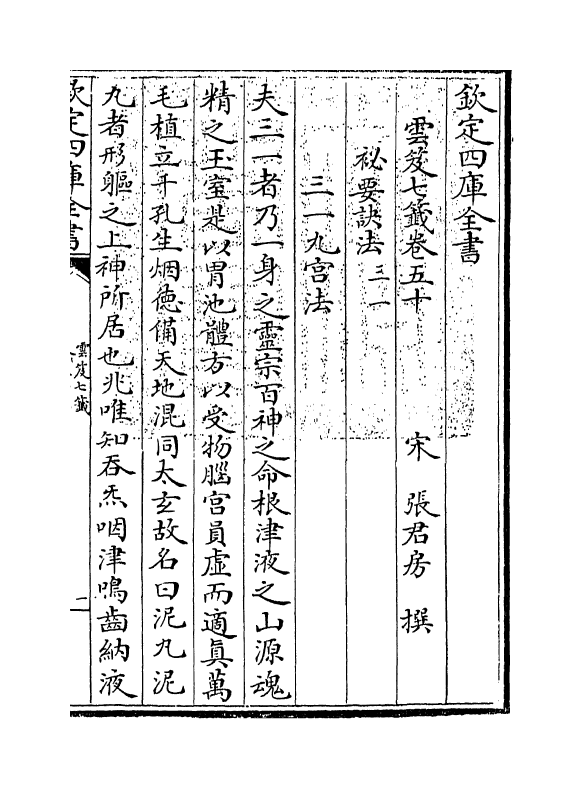 欽定四庫全書
雲笈七籤卷五十
宋 張君房 撰
祕要訣法 三一
三一九宫法
夫三一者乃一身之靈宗百神之命根津液之山源魂
精之玉室是以胃池體方以受物腦宫員虛而適真萬
毛植立千孔生烟徳備天地混同太玄故名曰泥丸泥
丸者形軀之上神所居也兆唯知吞炁咽津鳴齒納液
欽定四庫全書
雲笈七籤